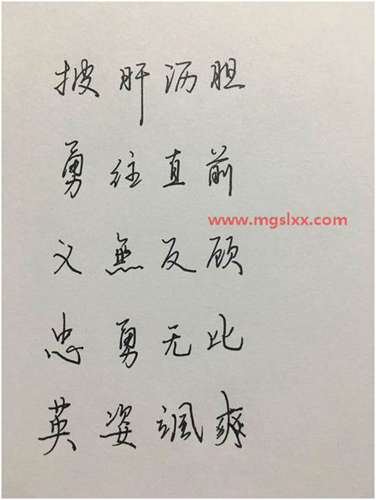 披肝沥胆
勇往直前
www.mgslxx.com
义無反顾
忠勇无比
英姿飒爽